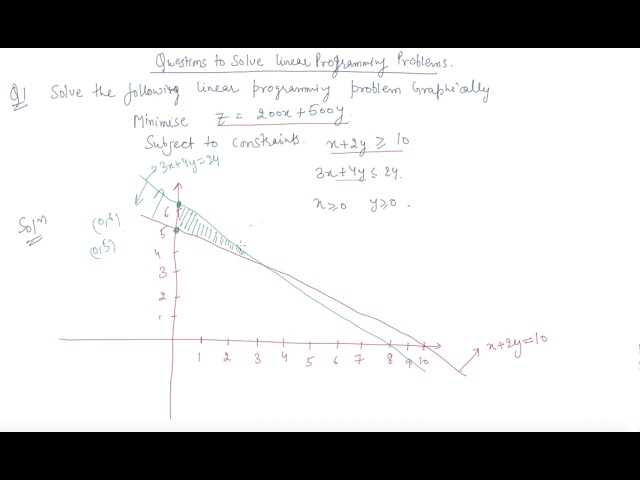 Questions to Solve linear Programming Problems.
Q1 Solve the following linear programming problem Graphically
Minimise z = 200x + 500y.
Subject to constraints. x+2y ≥ 10.
3x+4y ≤ 24.
x≥0 y≥0.
3x+4y=24
Solⁿ
(0,6)
(0,5)
6
5
4
3
2
1
1 2 3 4 5 6 7 8 9 10
x+2y=10